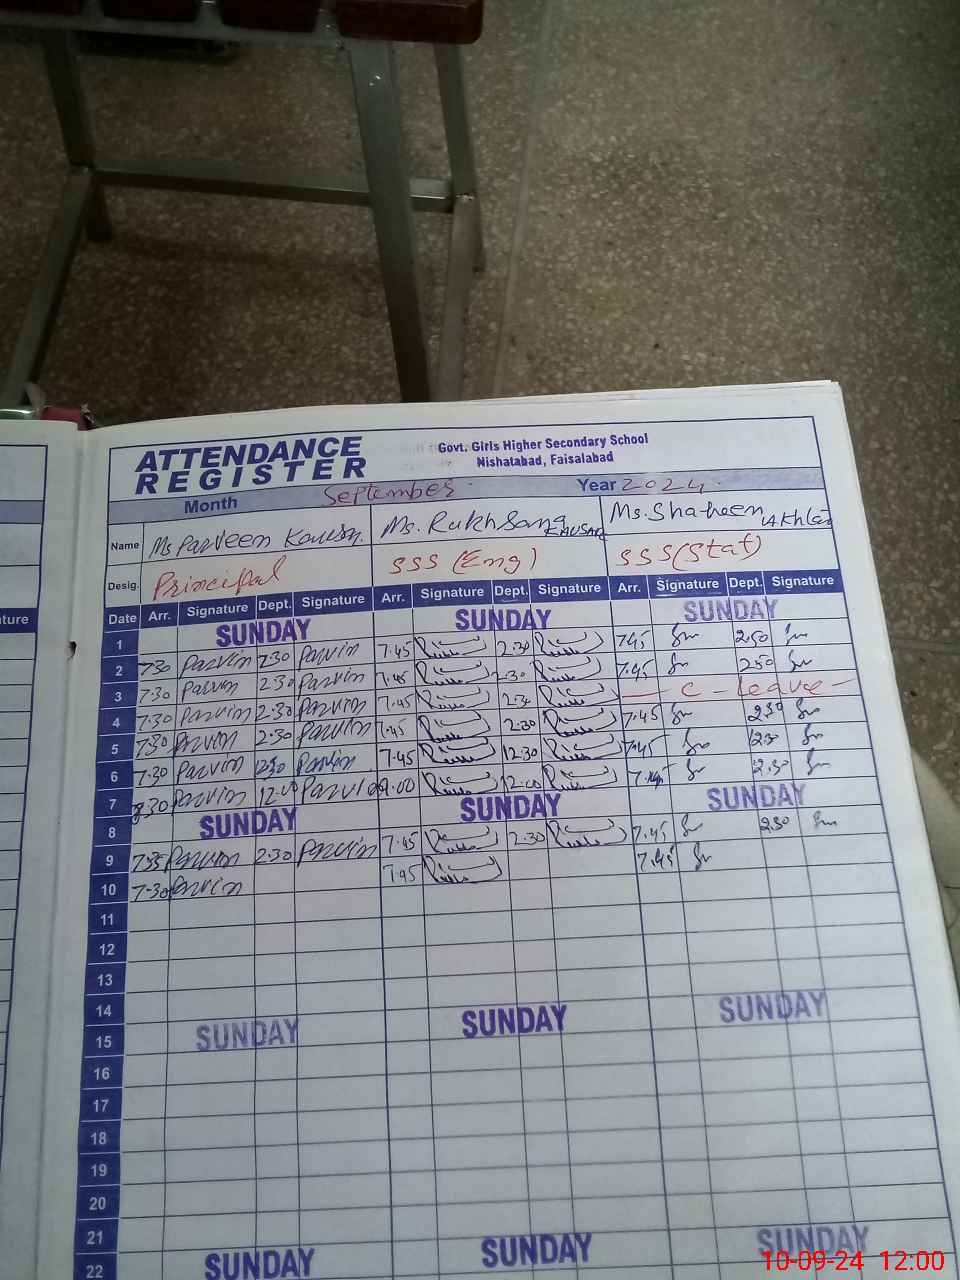 ATTENDANCE REGISTER Govt. Girls Higher Secondary School
Nishatabad, Faisalabad
Month September Year 2024
Name Ms Parveen Kausar. Ms. Rukhsana KAUSAR Ms. Shaheen Akhtar
Desig. Principal SSS (Eng) SSS (Stat)
Date Arr. Signature Dept. Signature Arr. Signature Dept. Signature Arr. Signature Dept. Signature
1 SUNDAY SUNDAY SUNDAY
2 7.30 Parvin 2.30 Parvin 7.45 2.30 7.45 2.30
3 7.30 Parvin 2.30 Parvin 7.45 2.30 7.45 2.30
4 7.30 Parvin 2.30 Parvin 7.45 2.30 C - leave
5 7.30 Parvin 2.30 Parvin 7.45 2.30 7.45 2.30
6 7.30 Parvin 12.30 Parvin 7.45 12.30 7.45 12.30
7 8.30 Parvin 12.00 Parvin 9.00 12.00 7.45 12.30
8 SUNDAY SUNDAY SUNDAY
9 7.35 Parvin 2.30 Parvin 7.45 2.30 7.45 2.30
10 7.30 Parvin 7.45 7.45
11
12
13
14
15 SUNDAY SUNDAY SUNDAY
16
17
18
19
20
21
22 SUNDAY SUNDAY SUNDAY
ture
10-09-24 12:00